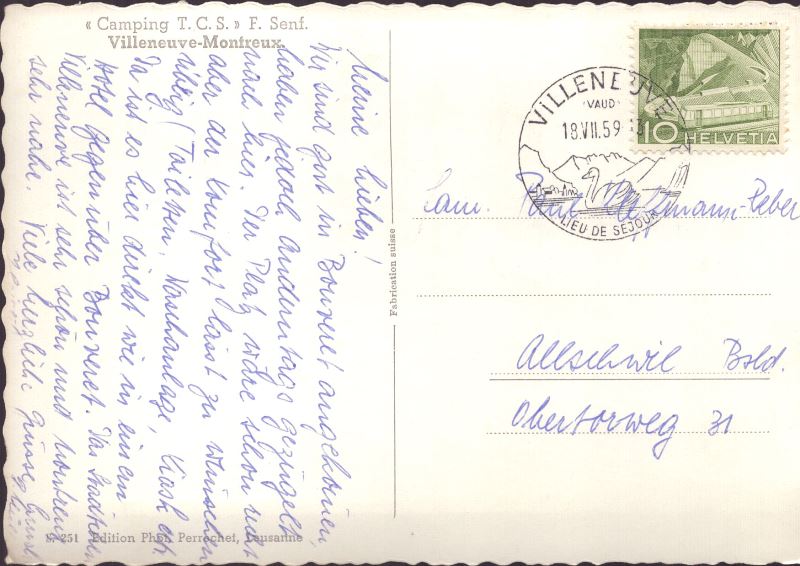 « Camping T. C. S. » F. Senf.
Villeneuve-Montreux.
Meine lieben!
Wir sind gut in Bouveret angekommen,
haben jedoch anderntags gezügelt
nach hier. Der Platz wäre schon nett
aber der Komfort lässt zu wünschen
übrig (Toiletten, Waschanlage, Kiosk etc.
Da ist es hier direkt wie in einem
Hotel gegenüber Bouveret. Das Städtchen
Villeneuve ist sehr schön und Montreux
sehr nahe. Viele herzliche Grüsse
S. 251 Edition Phot. Perrochet, Lausanne
Fabrication suisse
VILLENEUVE
(VAUD)
18.VII.59
LIEU DE SEJOUR
10 HELVETIA
Fam. Paul
Allschwil Bsld.
Obertorweg 31